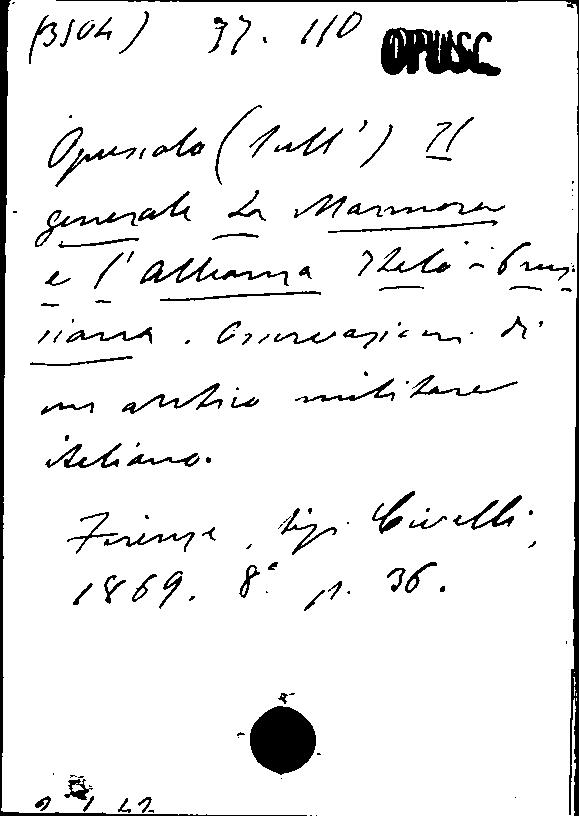 (3504) 37. 110 OPUSC.
Opuscolo (sull') Il
generale La Marmora
e l'Alleanza Italo-Prus-
siana. Osservazioni di
un antico militare
italiano.
Firenze, tip. Civelli,
1869. 8° p. 36.